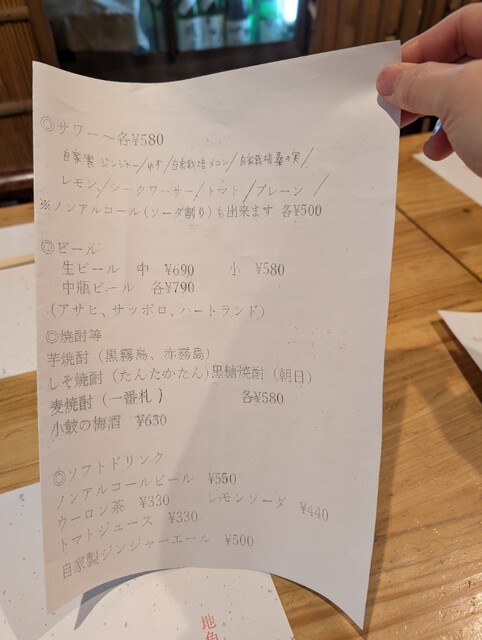 ◎サワー～各¥580
自家製 ジンジャー/ゆず/自家栽培メロン/自家栽培桑の実/
レモン/シークワーサー/トマト/プレーン /
※ノンアルコール(ソーダ割り)も出来ます 各¥500
◎ビール
生ビール 中 ¥690 小 ¥580
中瓶ビール 各¥790
(アサヒ、サッポロ、ハートランド)
◎焼酎等
芋焼酎(黒霧島、赤霧島)
しそ焼酎(たんたかたん)黒糖焼酎(朝日)
麦焼酎(一番札) 各¥580
小鼓の梅酒 ¥650
◎ソフトドリンク
ノンアルコールビール ¥550
ウーロン茶 ¥330 レモンソーダ ¥440
トマトジュース ¥330
自家製ジンジャーエール ¥500
地魚